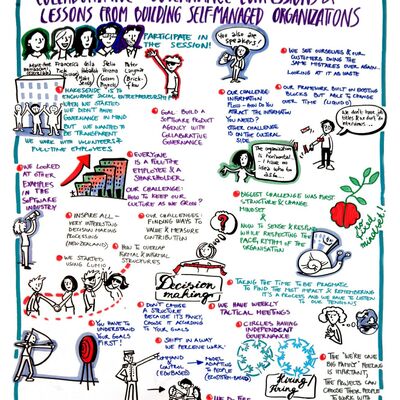 COLLABORATIVE GOVERNANCE CONFESSIONS &
LESSONS FROM BUILDING SELF-MANAGED ORGANIZATIONS
PARTICIPATE IN
THE SESSION!
You also are
speakers!
Francesca
MAKESENSE IS TO
ENCOURAGE SOCIAL ENTREPRENEURSHIP
WHEN WE STARTED
WE DIDN'T HAVE
GOVERNANCE IN MIND
BUT WE WANTED TO
BE TRANSPARENT
WE WORK WITH VOLUNTEERS &
FULL-TIME EMPLOYEES
GOAL: BUILD A
SOFTWARE PRODUCT
AGENCY WITH
COLLABORATIVE
GOVERNANCE
OUR CHALLENGE
INFORMATION
FLOW - HOW DO YOU
ATTRACT THE INFORMATION
YOU NEED?
OTHER
CHALLENGE IS
ON THE CULTURAL
SIDE
WE SET OURSELVES & OUR
CUSTOMERS DOING THE
SAME MISTAKES OVER AGAIN.
LOOKING AT IT AS WASTE
OUR FRAMEWORK, BUILT ON EXISTING
BLOCKS BUT ABLE TO CHANGE
OVER TIME (LIQUID)
I don't have job
titles & we don't do
interviews
The organization
is horizontal.
I have no
idea who to
talk to...
WE LOOKED
AT OTHER
EXAMPLES
IN THE
SOFTWARE
INDUSTRY
EVERYONE
IS A FULL-TIME
EMPLOYEE & A
SHAREHOLDER.
OUR CHALLENGE:
HOW TO KEEP OUR
CULTURE AS WE GROW?
BIGGEST CHALLENGE WAS FIRST
STRUCTURE & CHANGE
MINDSET
HOW TO SENSE & RESPOND
WHILE RESPECTING THE
PACE, RYTHM OF THE
ORGANISATION
mindset
INSPIRE ALL -
VERY INTERESTING
DECISION MAKING
PROCESSING
(NEW ZEALAND)
WE STARTED
USING LUMIO
OUR CHALLENGES:
FINDING WAYS
VALUE & MEASURE
CONTRIBUTION
HOW TO OVERLAP
STRUCTURES
Decision
making
TAKING THE TIME TO BE PRAGMATIC
TO FIND THE MOST IMPACT & REMEMBERING
IT'S A PROCESS AND WE HAVE TO LISTEN
TO OUR TENSIONS
DON'T CHOOSE
A STRUCTURE
BECAUSE IT'S FANCY,
CHOOSE IT ACCORDING
TO YOUR GOALS
WE HAVE WEEKLY
TACTICAL MEETINGS
CIRCLES HAVING
INDEPENDENT
GOVERNANCE
YOU HAVE TO
UNDERSTAND
YOUR GOALS
FIRST!
SHIFT IN A WAY
WE PERCEIVE WORK
COMMAND
&
CONTROL
MODEL
ADAPTING
TO PEOPLE
Hiring/
Firing
THE 'WE'RE ONE
BIG FAMILY' MEETING
IS IMPORTANT,
THE PROJECTS CAN
CHOOSE THEIR PEOPLE
TO WORK WITH